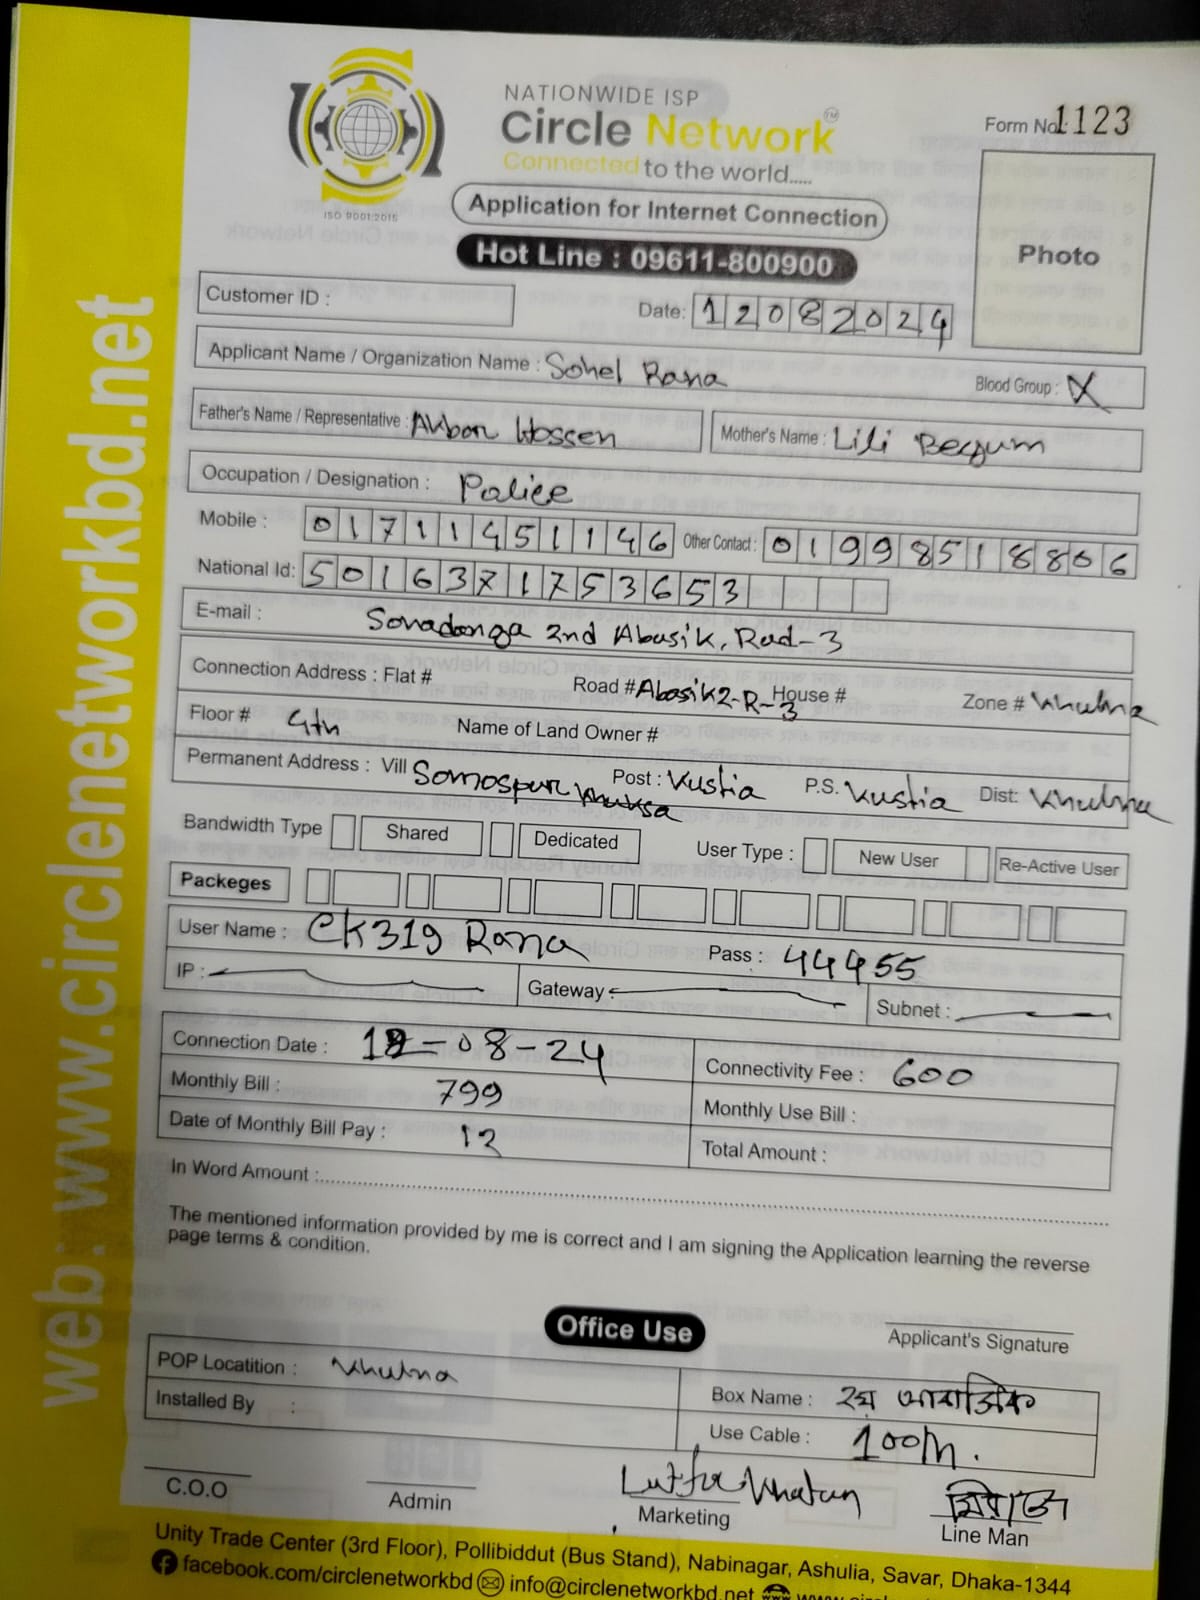 NATIONWIDE ISP
Circle Network™
Connected to the world.....
ISO 9001:2015
Form No: 1123
Photo
Application for Internet Connection
Hot Line : 09611-800900
Customer ID :
Date: 12082024
Applicant Name / Organization Name : Sohel Rana
Blood Group : X
Father's Name / Representative : Akbor Hossen
Mother's Name : Lili Begum
Occupation / Designation : Police
Mobile : 01711451146 Other Contact : 01998518806
National Id: 5016371753653
E-mail : Sonadonga 2nd Abasik, Rad-3
Connection Address : Flat # Road # Abasik2-R-3 House # Zone # Khulna
Floor # 4th Name of Land Owner #
Permanent Address : Vill Somospur Khoksa Post : Kustia P.S. Kustia Dist: Khulna
Bandwidth Type Shared Dedicated User Type : New User Re-Active User
Packeges
User Name : CK319 Rana Pass : 44455
IP : Gateway : Subnet :
Connection Date : 12-08-24 Connectivity Fee : 600
Monthly Bill : 799 Monthly Use Bill :
Date of Monthly Bill Pay : 12 Total Amount :
In Word Amount :
The mentioned information provided by me is correct and I am signing the Application learning the reverse
page terms & condition.
Applicant's Signature
Office Use
POP Locatition : Khulna Box Name : ২য় আবাসিক
Installed By : Use Cable : 100m.
Lutfa Khatun মিরাজ
C.O.O Admin Marketing Line Man
Unity Trade Center (3rd Floor), Pollibiddut (Bus Stand), Nabinagar, Ashulia, Savar, Dhaka-1344
facebook.com/circlenetworkbd info@circlenetworkbd.net
web: www.circlenetworkbd.net